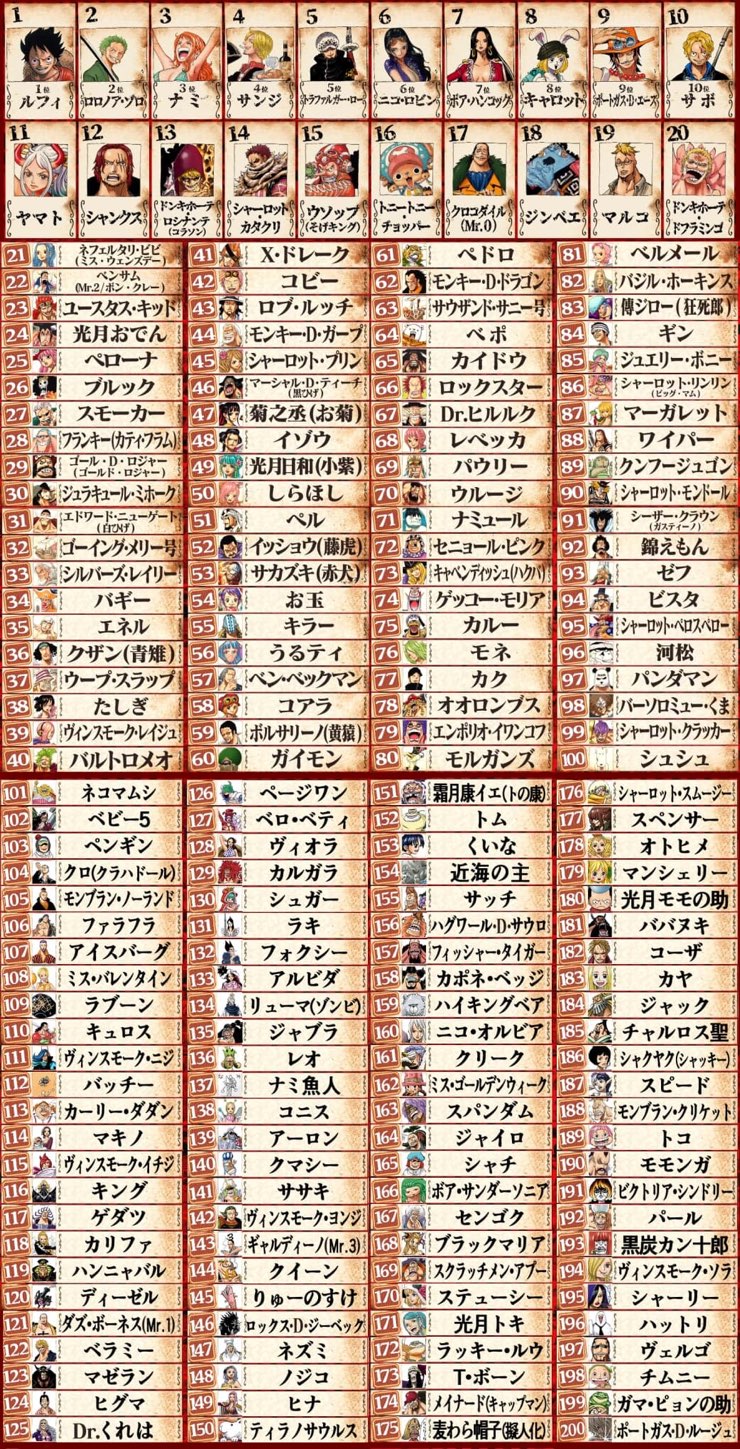 1
1位
ルフィ
2
2位
ロロノア・ゾロ
3
3位
ナミ
4
4位
サンジ
5
5位
トラファルガー・ロー
6
6位
ニコ・ロビン
7
7位
ボア・ハンコック
8
8位
キャロット
9
9位
ポートガス・D・エース
10
10位
サボ
11
ヤマト
12
シャンクス
13
ドンキホーテ
・
ロシナンテ
(コラソン)
14
シャーロット
・
カタクリ
15
ウソップ
(そげキング)
16
トニートニー
・
チョッパー
17
クロコダイル
(Mr.0)
18
ジンベエ
19
マルコ
20
ドンキホーテ
・
ドフラミンゴ
21 ネフェルタリ・ビビ
(ミス・ウェンズデー)
22 ベンサム
(Mr.2/ボン・クレー)
23 ユースタス・キッド
24 光月おでん
25 ペローナ
26 ブルック
27 スモーカー
28 フランキー(カティ・フラム)
29 ゴール・D・ロジャー
(ゴールド・ロジャー)
30 ジュラキュール・ミホーク
31 エドワード・ニューゲート
(白ひげ)
32 ゴーイング・メリー号
33 シルバーズ・レイリー
34 バギー
35 エネル
36 クザン(青雉)
37 ウープ・スラップ
38 たしぎ
39 ヴィンスモーク・レイジュ
40 バルトロメオ
41 X・ドレーク
42 コビー
43 ロブ・ルッチ
44 モンキー・D・ガープ
45 シャーロット・プリン
46 マーシャル・D・ティーチ
(黒ひげ)
47 菊之丞(お菊)
48 イゾウ
49 光月日和(小紫)
50 しらほし
51 ペル
52 イッショウ(藤虎)
53 サカズキ(赤犬)
54 お玉
55 キラー
56 うるティ
57 ベン・ベックマン
58 コアラ
59 ボルサリーノ(黄猿)
60 ガイモン
61 ペドロ
62 モンキー・D・ドラゴン
63 サウザンド・サニー号
64 ベポ
65 カイドウ
66 ロックスター
67 Dr.ヒルルク
68 レベッカ
69 パウリー
70 ウルージ
71 ナミュール
72 セニョール・ピンク
73 キャベンディッシュ(ハクバ)
74 ゲッコー・モリア
75 カルー
76 モネ
77 カク
78 オオロンブス
79 エンポリオ・イワンコフ
80 モルガンズ
81 ベルメール
82 バジル・ホーキンス
83 傳ジロー(狂死郎)
84 ギン
85 ジュエリー・ボニー
86 シャーロット・リンリン
(ビッグ・マム)
87 マーガレット
88 ワイパー
89 クンフージュゴン
90 シャーロット・モンドール
91 シーザー・クラウン
(ガスティーノ)
92 錦えもん
93 ゼフ
94 ビスタ
95 シャーロット・ペロスペロー
96 河松
97 パンダマン
98 バーソロミュー・くま
99 シャーロット・クラッカー
100 シュシュ
101 ネコマムシ
102 ベビー5
103 ペンギン
104 クロ(クラハドール)
105 モンブラン・ノーランド
106 ファラフラ
107 アイスバーグ
108 ミス・バレンタイン
109 ラブーン
110 キュロス
111 ヴィンスモーク・ニジ
112 バッチー
113 カーリー・ダダン
114 マキノ
115 ヴィンスモーク・イチジ
116 キング
117 ゲダツ
118 カリファ
119 ハンニャバル
120 ディーゼル
121 ダズ・ボーネス(Mr.1)
122 ベラミー
123 マゼラン
124 ヒグマ
125 Dr.くれは
126 ページワン
127 ベロ・ベティ
128 ヴィオラ
129 カルガラ
130 シュガー
131 ラキ
132 フォクシー
133 アルビダ
134 リューマ(ゾンビ)
135 ジャブラ
136 レオ
137 ナミ魚人
138 コニス
139 アーロン
140 クマシー
141 ササキ
142 ヴィンスモーク・ヨンジ
143 ギャルディーノ(Mr.3)
144 クイーン
145 りゅーのすけ
146 ロックス・D・ジーベック
147 ネズミ
148 ノジコ
149 ヒナ
150 ティラノサウルス
151 霜月康イエ(トの康)
152 トム
153 くいな
154 近海の主
155 サッチ
156 ハグワール・D・サウロ
157 フィッシャー・タイガー
158 カポネ・ベッジ
159 ハイキングベア
160 ニコ・オルビア
161 クリーク
162 ミス・ゴールデンウィーク
163 スパンダム
164 ジャイロ
165 シャチ
166 ボア・サンダーソニア
167 センゴク
168 ブラックマリア
169 スクラッチメン・アプー
170 ステューシー
171 光月トキ
172 ラッキー・ルウ
173 T・ボーン
174 メイナード(キャップマン)
175 麦わら帽子(擬人化)
176 シャーロット・スムージー
177 スペンサー
178 オトヒメ
179 マンシェリー
180 光月モモの助
181 ババヌキ
182 コーザ
183 カヤ
184 ジャック
185 チャルロス聖
186 シャクヤク(シャッキー)
187 スピード
188 モンブラン・クリケット
189 トコ
190 モモンガ
191 ビクトリア・シンドリー
192 パール
193 黒炭カン十郎
194 ヴィンスモーク・ソラ
195 シャーリー
196 ハットリ
197 ヴェルゴ
198 チムニー
199 ガマ・ピョンの助
200 ポートガス・D・ルージュ